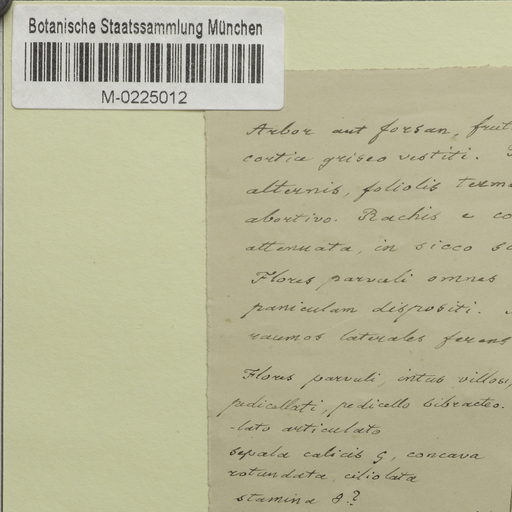 Botanische Staatssammlung München
M-0225012
Arbor aut forsan, frut
cortice griseo vestiti.
alternis, foliolis term
abortivo. Rachis e co
attenuata, in sicco
Flores parvuli omnes
paniculam dispositi.
ramos laterales ferens
Flores parvuli, intus villosi,
pedicellati, pedicello bibracteo-
-lato articulato
Sepala calicis 5, concava
rotundata, ciliolata
stamina 8?